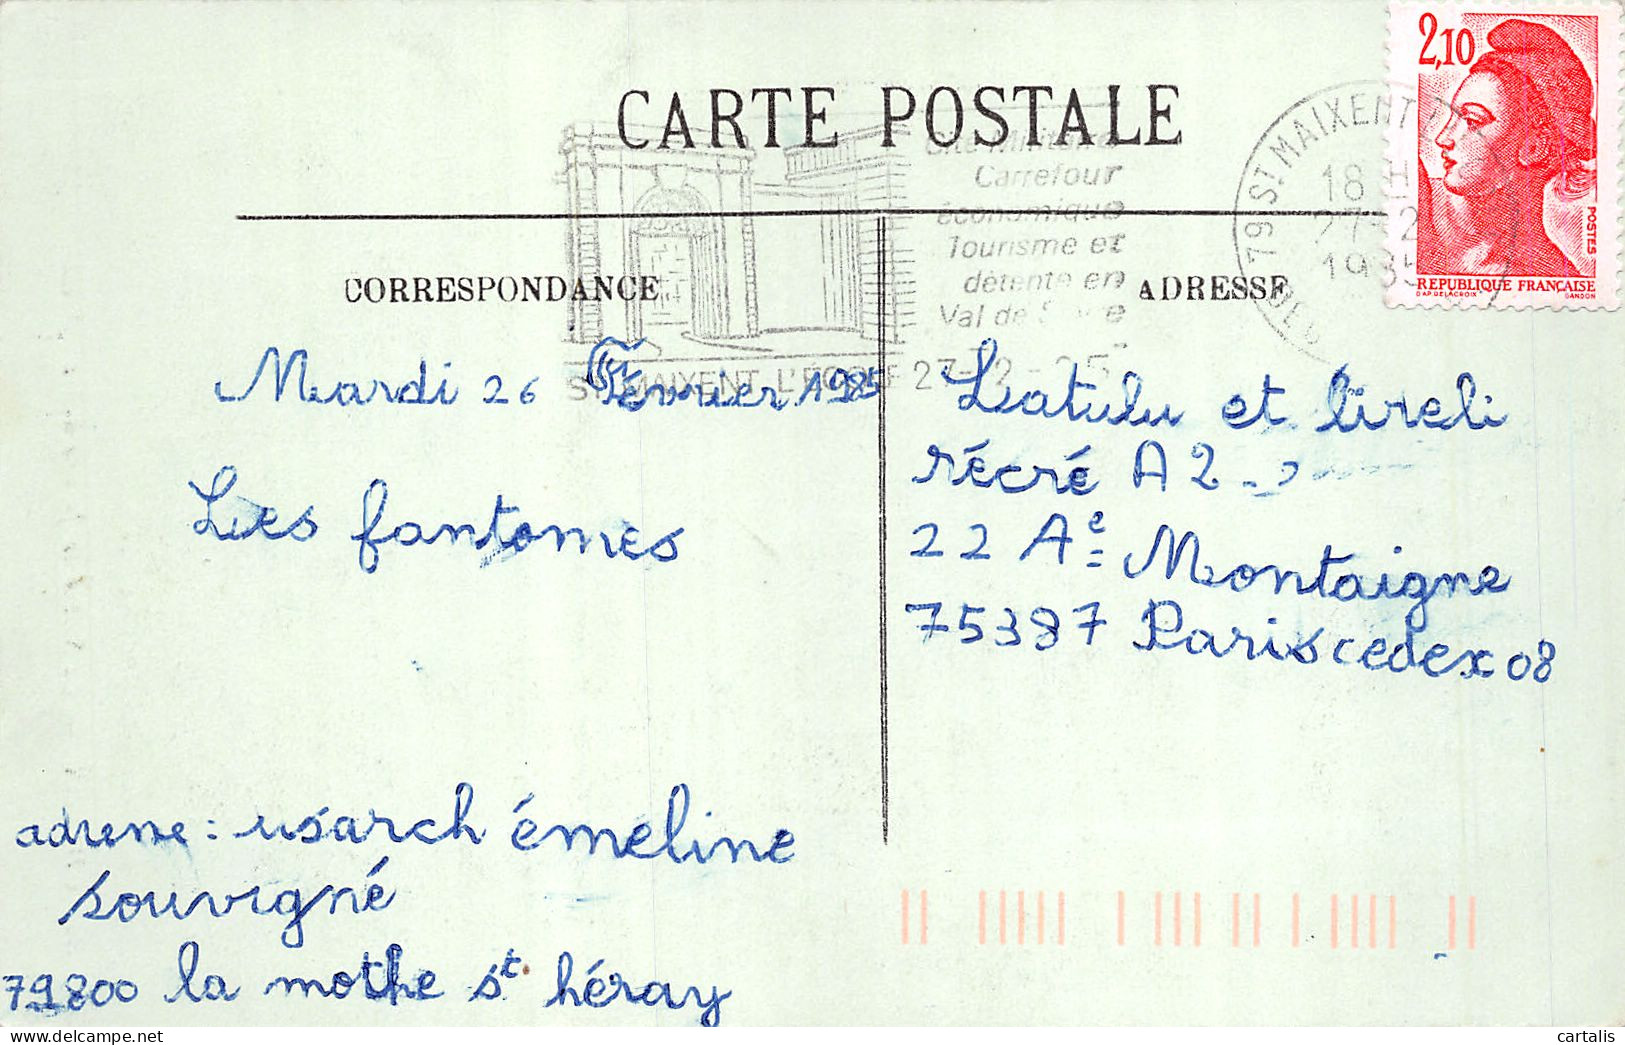 CARTE POSTALE
2,10
POSTES
REPUBLIQUE FRANÇAISE
D'AP. DELACROIX
GANDON
79 ST MAIXENT
18 H
27-2
1985
Cité Militaire
Carrefour
économique
Tourisme et
détente en
Val de Sèvre
ST MAIXENT L'ECOLE
27-2-85
CORRESPONDANCE
ADRESSE
Mardi 26 Février 1985
Les fantomes
Latulu et lireli
récré A2
22 Ae Montaigne
75387 Paris cedex 08
adresse : usarch émeline
souvigné
79800 la mothe st héray
cartalis